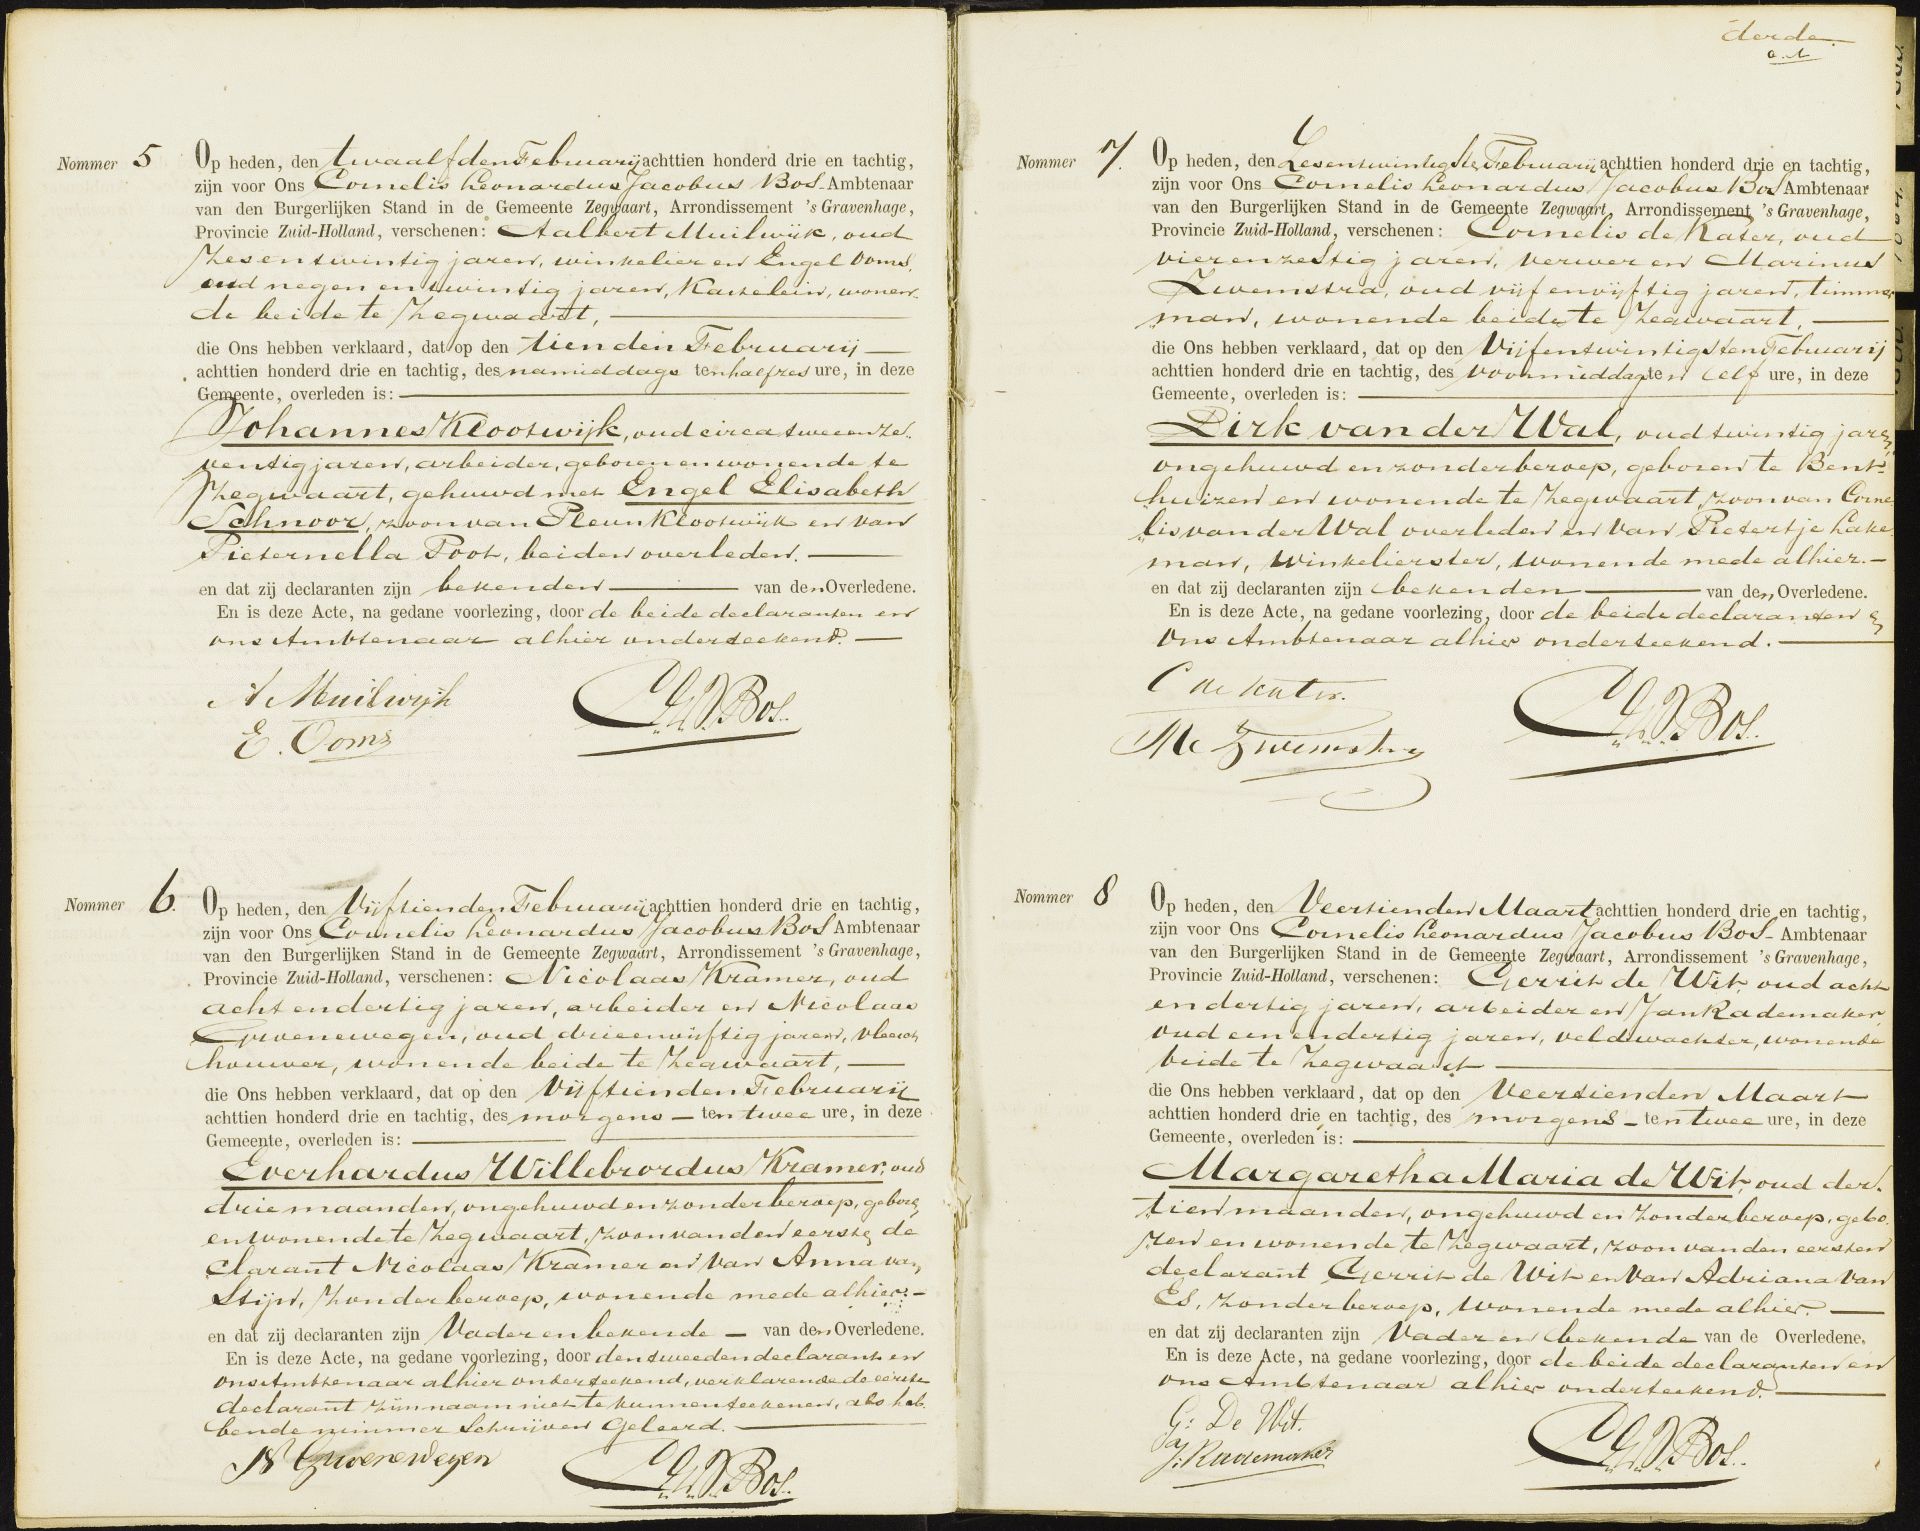 Nommer 5
Op heden, den twaalfden Februarij achttien honderd drie en tachtig,
zijn voor Ons Cornelis Leonardus Jacobus Bos Ambtenaar
van den Burgerlijken Stand in de Gemeente Zegwaart, Arrondissement 's Gravenhage,
Provincie Zuid-Holland, verschenen: Aalbert Muilwijk, oud
Zesentwintig jaren, winkelier en Engel Ooms,
oud negen en twintig jaren, Kastelein, wonen-
de beide te Zegwaart,
die Ons hebben verklaard, dat op den tienden Februarij
achttien honderd drie en tachtig, des namiddags ten half zes ure, in deze
Gemeente, overleden is:
Johannes Klootwijk, oud circa tweeenze-
ventig jaren, arbeider, geboren en wonende te
Zegwaart, gehuwd met Engel Elisabeth
Schnoor, zoon van Pleun Klootwijk en van
Pieternella Poot, beiden overleden.
en dat zij declaranten zijn bekenden van den Overledene.
En is deze Acte, na gedane voorlezing, door de beide declaranten en
ons Ambtenaar alhier onderteekend.
A Muilwijk
E. Ooms
C.L.J. Bos.
Nommer 6.
Op heden, den Vijftienden Februarij achttien honderd drie en tachtig,
zijn voor Ons Cornelis Leonardus Jacobus Bos Ambtenaar
van den Burgerlijken Stand in de Gemeente Zegwaart, Arrondissement 's Gravenhage,
Provincie Zuid-Holland, verschenen: Nicolaas Kramer, oud
acht en dertig jaren, arbeider en Nicolaas
Groenewegen, oud drieenvijftig jaren, vleesch
houwer, wonende beide te Zegwaart,
die Ons hebben verklaard, dat op den Vijftienden Februarij
achttien honderd drie en tachtig, des morgens ten twee ure, in deze
Gemeente, overleden is:
Everhardus Willebrordus Kramer, oud
drie maanden, ongehuwd en zonder beroep, geboren
en wonende te Zegwaart, zoon van den eersten de
clarant Nicolaas Kramer en van Anna van
Stijn, zonder beroep, wonende mede alhier.
en dat zij declaranten zijn Vader en bekende van den Overledene.
En is deze Acte, na gedane voorlezing, door den tweeden declarant en
ons Ambtenaar alhier onderteekend, verklarende de eerste
declarant zijn naam niet te kunnen teekenen, als heb-
bende nimmer Schrijven geleerd.
N Groenewegen
C.L.J. Bos.
derde
Nommer 7.
Op heden, den Zesentwintigste Februarij achttien honderd drie en tachtig,
zijn voor Ons Cornelis Leonardus Jacobus Bos Ambtenaar
van den Burgerlijken Stand in de Gemeente Zegwaart, Arrondissement 's Gravenhage,
Provincie Zuid-Holland, verschenen: Cornelis de Kater, oud
vierenzestig jaren, verwer en Marinus
Zwemstra, oud vijfenvijftig jaren, timmer
man, wonende beide te Zegwaart,
die Ons hebben verklaard, dat op den Vijfentwintigsten Februarij
achttien honderd drie en tachtig, des voormiddags ten elf ure, in deze
Gemeente, overleden is:
Dirk van der Wal, oud twintig jaren,
ongehuwd en zonder beroep, geboren te Bent-
huizen en wonende te Zegwaart, zoon van Corne
lis van der Wal overleden en van Pietertje Lake
man, winkelierster, wonende mede alhier.
en dat zij declaranten zijn bekenden van den Overledene.
En is deze Acte, na gedane voorlezing, door de beide declaranten en
Ons Ambtenaar alhier onderteekend.
C de Kater.
M Zwemstra
C.L.J. Bos.
Nommer 8
Op heden, den Veertienden Maart achttien honderd drie en tachtig,
zijn voor Ons Cornelis Leonardus Jacobus Bos Ambtenaar
van den Burgerlijken Stand in de Gemeente Zegwaart, Arrondissement 's Gravenhage,
Provincie Zuid-Holland, verschenen: Gerrit de Wit, oud acht
en dertig jaren, arbeider en Jan Rademaker,
oud een en dertig jaren, veldwachter, wonende
beide te Zegwaart
die Ons hebben verklaard, dat op den Veertienden Maart
achttien honderd drie en tachtig, des morgens ten twee ure, in deze
Gemeente, overleden is:
Margaretha Maria de Wit, oud der-
tien maanden, ongehuwd en zonder beroep, gebo
ren en wonende te Zegwaart, zoon van den eersten
declarant Gerrit de Wit en van Adriana van
Es, zonder beroep, wonende mede alhier.
en dat zij declaranten zijn Vader en bekende van de Overledene.
En is deze Acte, na gedane voorlezing, door de beide declaranten en
ons Ambtenaar alhier onderteekend.
G: De Wit.
J: Rademaker
C.L.J. Bos.